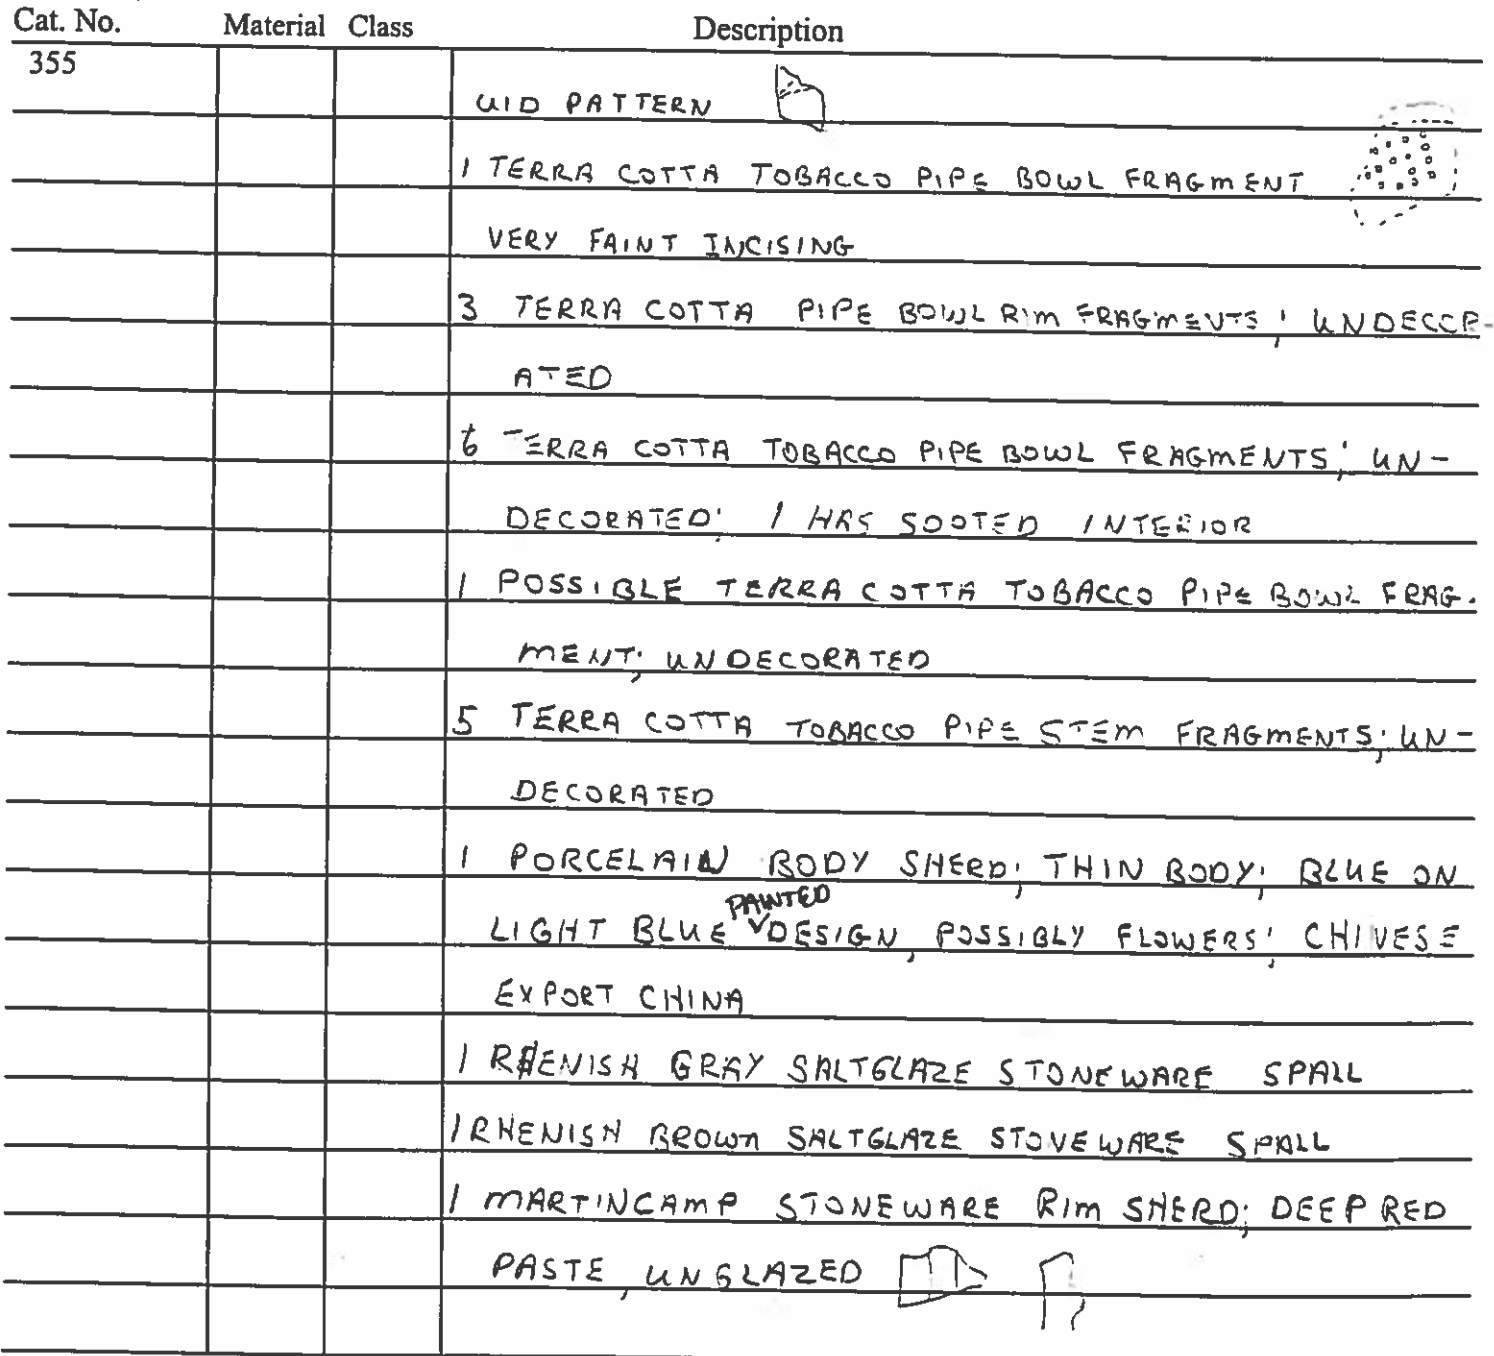 Cat. No. Material Class Description
355
UID PATTERN
1 TERRA COTTA TOBACCO PIPE BOWL FRAGMENT
VERY FAINT INCISING
3 TERRA COTTA PIPE BOWL RIM FRAGMENTS; UNDECOR-
ATED
6 TERRA COTTA TOBACCO PIPE BOWL FRAGMENTS; UN-
DECORATED; 1 HAS SOOTED INTERIOR
1 POSSIBLE TERRA COTTA TOBACCO PIPE BOWL FRAG-
MENT; UNDECORATED
5 TERRA COTTA TOBACCO PIPE STEM FRAGMENTS; UN-
DECORATED
1 PORCELAIN BODY SHERD; THIN BODY; BLUE ON
LIGHT BLUE PAINTED DESIGN, POSSIBLY FLOWERS; CHINESE
EXPORT CHINA
1 RHENISH GRAY SALTGLAZE STONEWARE SPALL
1 RHENISH BROWN SALTGLAZE STONEWARE SPALL
1 MARTINCAMP STONEWARE RIM SHERD; DEEP RED
PASTE, UNGLAZED